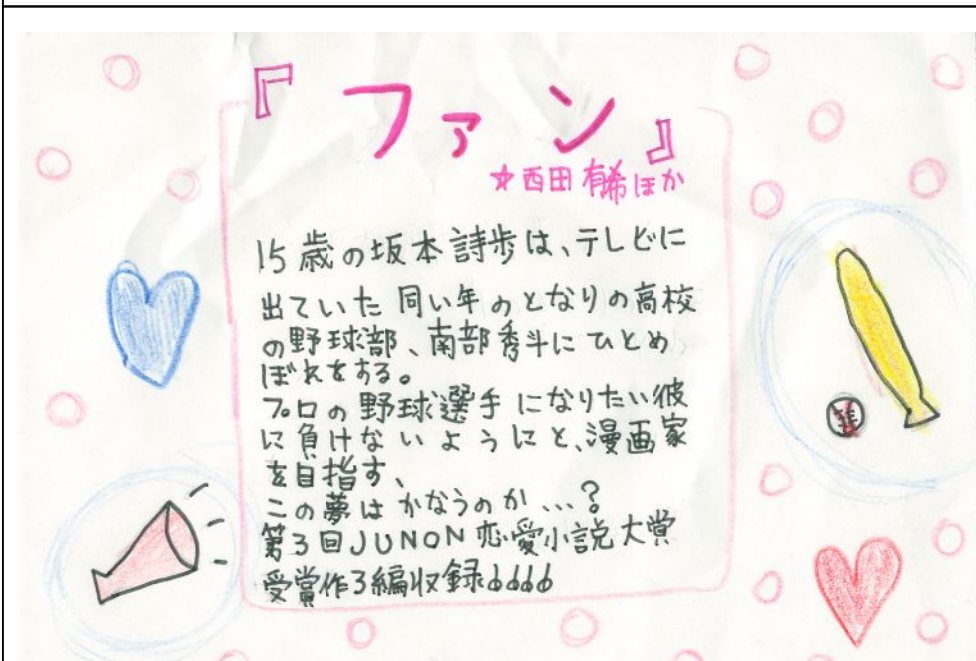 『ファン』
☆西田有希ほか
15歳の坂本詩歩は、テレビに
出ていた同い年のとなりの高校
の野球部、南部秀斗にひとめ
ぼれをする。
プロの野球選手になりたい彼
に負けないようにと、漫画家
を目指す、
この夢はかなうのか…?
第3回JUNON恋愛小説大賞
受賞作3編収録